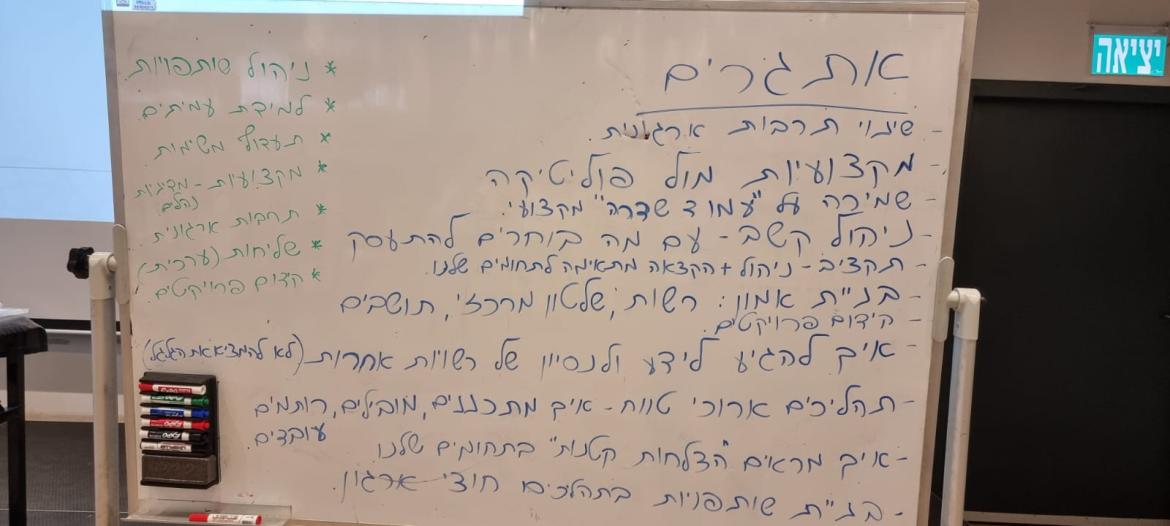 יציאה
אתגרים
- שינוי תרבות ארגונית.
- מקצועיות מול פוליטיקה
- שמירה על "עמוד שדרה" מקצועי.
- ניהול קשב - עם מה בוחרים להתעסק
- תקציב - ניהול + הקצאה מתאימה לתחומים שלנו.
- בניית אמון: רשות, שלטון מרכזי, תושבים
- קידום פרויקטים.
- איך להגיע לידע ולנסיון של רשויות אחרות (לא להמציא את הגלגל)
- תהליכים ארוכי טווח - איך מתכננים, מובילים, רותמים
עובדים.
- איך מראים "הצלחות קטנות" בתחומים שלנו.
- בניית שותפויות בתהליכים חוצי ארגון.
* ניהול שותפויות
* למידת עמיתים.
* תעדוף משימות.
* מקצועיות - מדיניות
נהלים
* תרבות ארגונית.
* שליחות (ערכית)
* קידום פרוייקטים.